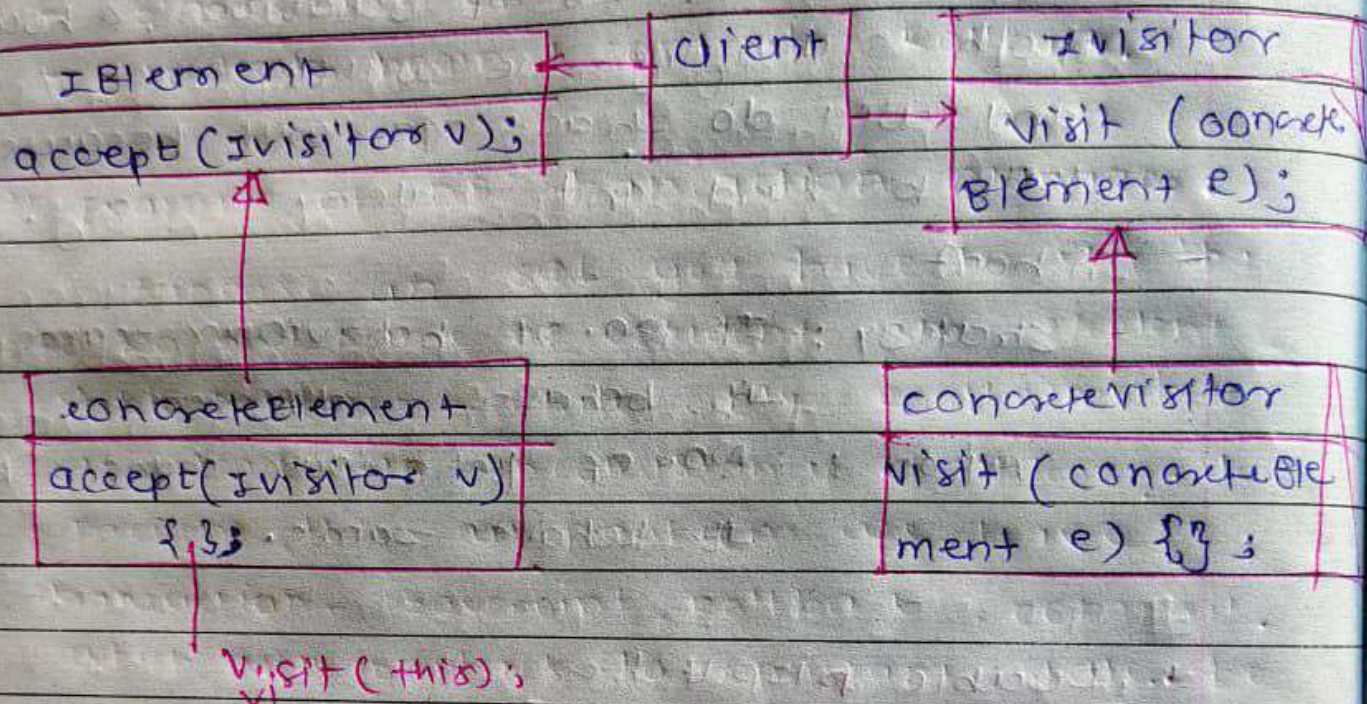 IElement
accept (Ivisitor v);
client
Ivisitor
visit (concrete
Element e);
concreteElement
accept(Ivisitor v)
{ };
visit (this);
concretevisitor
visit (concreteEle
ment e) {} ;